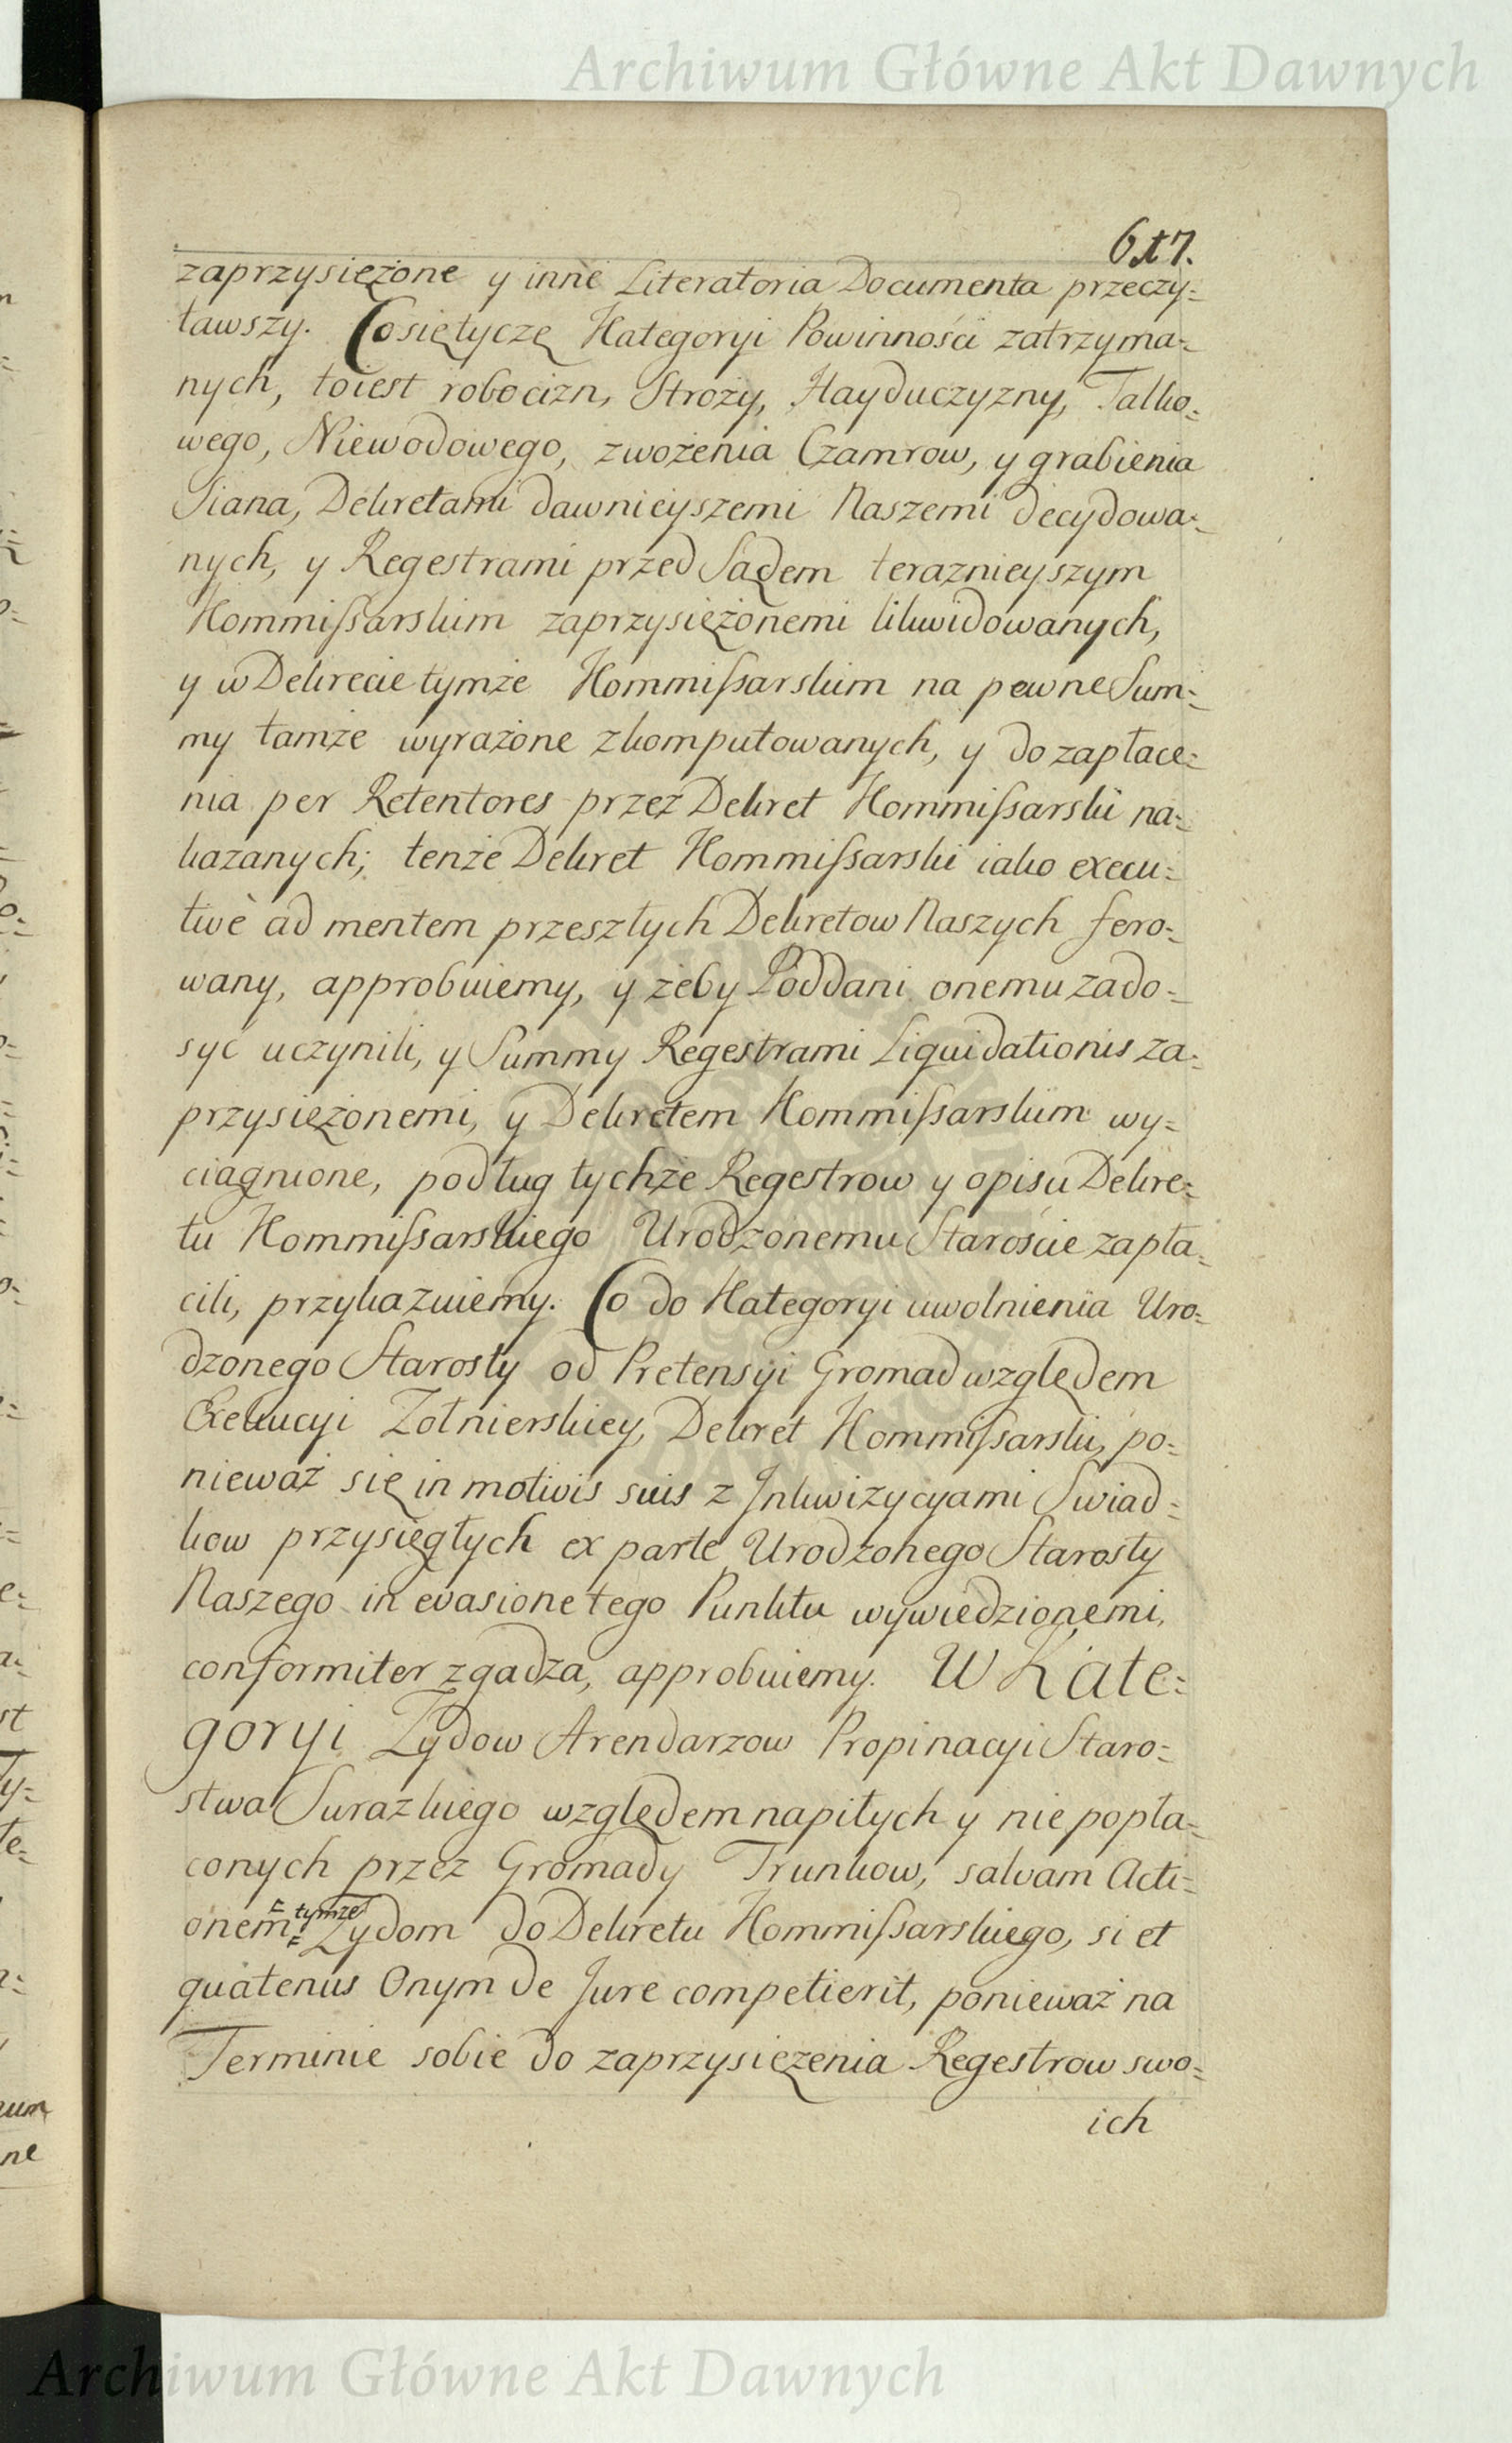 Archiwum Główne Akt Dawnych
617.
zaprzysiężone y inne Literatoria Documenta przeczy=
tawszy. Co się tycze Kategoryi Powinności zatrzyma=
nych, toiest robocizn, Stroży, Hayduczyzny, Talko=
wego, Niewodowego, zwożenia Czamrow, y grabienia
Siana, Dekretami dawnieyszemi Naszemi decydowa=
nych, y Regestrami przed Sądem teraznieyszym
Kommissarskim zaprzysiężonemi likwidowanych,
y w Dekrecie tymże Kommissarskim na pewne Sum=
my tamże wyrażone zkomputowanych, y do zapłace=
nia per Retentores przez Dekret Kommissarski na=
kazanych; tenże Dekret Kommissarski iako execu=
tivè ad mentem przeszłych Dekretow Naszych fero=
wany, approbuiemy, y żeby Poddani onemu zado=
syć uczynili, y Summy Regestrami Liquidationis za=
przysiężonemi, y Dekretem Kommissarskim wy=
ciągnione, podług tychże Regestrow y opisu Dekre=
tu Kommissarskiego Urodzonemu Staroście zapła=
cili, przykazuiemy. Co do Kategoryi uwolnienia Uro=
dzonego Starosty od Pretensyi Gromad względem
Exekucyi Zołnierskiey, Dekret Kommissarski, po=
nieważ się in motivis suis z Inkwizycyami Swiad=
kow przysięgłych ex parte Urodzonego Starosty
Naszego in evasione tego Punktu wywiedzionemi,
conformiter zgadza, approbuiemy. W Kate=
goryi Zydow Arendarzow Propinacyi Staro=
stwa Surazkiego względem napitych y nie popła=
conych przez Gromady Trunkow, salvam Acti=
onem tymże Zydom do Dekretu Kommissarskiego, si et
quatenus Onym de Jure competierit, ponieważ na
Terminie sobie do zaprzysiężenia Regestrow swo=
ich
Archiwum Główne Akt Dawnych